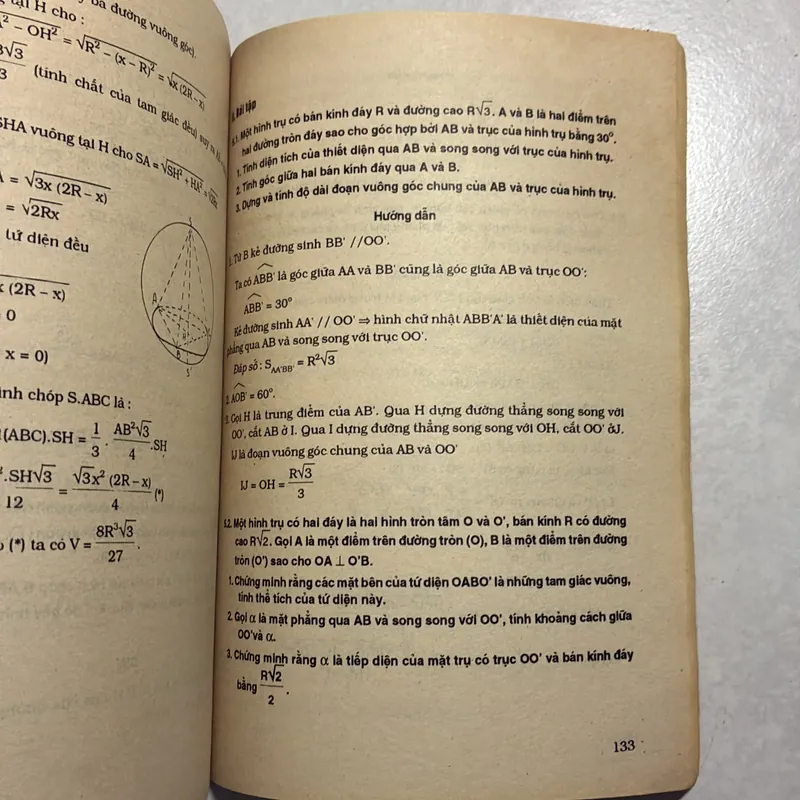 ba đường vuông góc).
tại H cho :
– OH² = √R² – (x – R)² = √x (2R – x)
3√3
3
(tính chất của tam giác đều)
SHA vuông tại H cho SA = √SH² + HA² = √2Rx
A = √3x (2R – x)
= √2Rx
tứ diện đều
x (2R – x)
= 0
x = 0)
S
A
B
S'
hình chóp S.ABC là :
(ABC).SH = 1/3 . AB²√3/4 .SH
².SH√3/12 = √3x² (2R – x)/4 (*)
(*) ta có V = 8R³√3/27 .
Bài tập
1. Một hình trụ có bán kính đáy R và đường cao R√3. A và B là hai điểm trên
hai đường tròn đáy sao cho góc hợp bởi AB và trục của hình trụ bằng 30°.
1. Tính diện tích của thiết diện qua AB và song song với trục của hình trụ.
2. Tính góc giữa hai bán kính đáy qua A và B.
3. Dựng và tính độ dài đoạn vuông góc chung của AB và trục của hình trụ.
Hướng dẫn
1. Từ B kẻ đường sinh BB' //OO'.
Ta có ABB' là góc giữa AA và BB' cũng là góc giữa AB và trục OO':
ABB' = 30°
Kẻ đường sinh AA' // OO' ⇒ hình chữ nhật ABB'A' là thiết diện của mặt
phẳng qua AB và song song với trục OO'.
Đáp số : S_AA'BB' = R²√3
2. AOB' = 60°.
3. Gọi H là trung điểm của AB'. Qua H dựng đường thẳng song song với
OO', cắt AB ở I. Qua I dựng đường thẳng song song với OH, cắt OO' ở J.
IJ là đoạn vuông góc chung của AB và OO'
IJ = OH = R√3/3
5.2. Một hình trụ có hai đáy là hai hình tròn tâm O và O', bán kính R có đường
cao R√2. Gọi A là một điểm trên đường tròn (O), B là một điểm trên đường
tròn (O') sao cho OA ⊥ O'B.
1. Chứng minh rằng các mặt bên của tứ diện OABO' là những tam giác vuông,
tính thể tích của tứ diện này.
2. Gọi α là mặt phẳng qua AB và song song với OO', tính khoảng cách giữa
OO'và α.
3. Chứng minh rằng α là tiếp diện của mặt trụ có trục OO' và bán kính đáy
bằng R√2/2 .
133